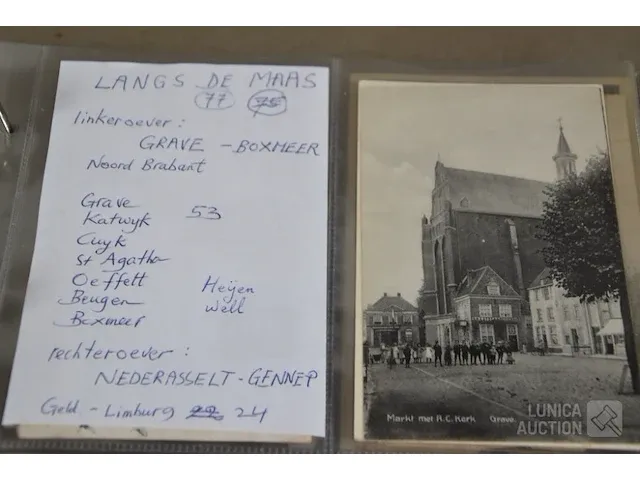 LANGS DE MAAS
77 75
linkeroever:
GRAVE - BOXMEER
Noord Brabant
Grave
Katwyk 53
Cuyk
St Agatha
Oeffelt Heijen
Beugen Well
Boxmeer
rechteroever:
NEDERASSELT - GENNEP
Geld - Limburg 24
Markt met R.C. Kerk Grave.
LUNICA
AUCTION